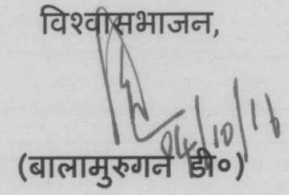 विश्वासभाजन,
04/10/16
(बालामुरुगन डी०)